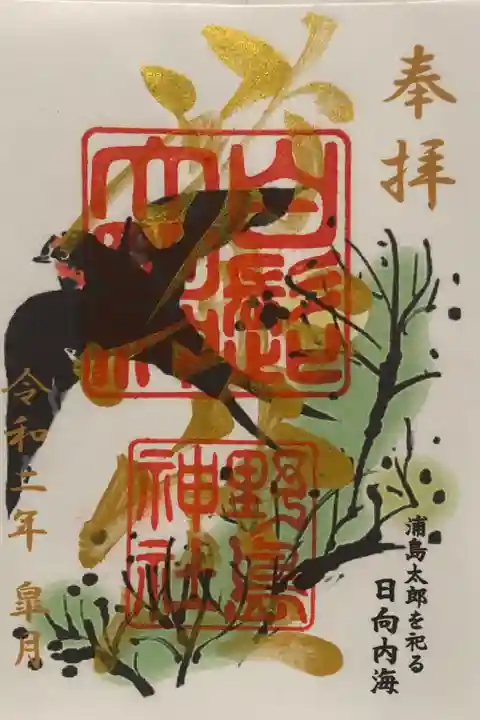 奉拝
野島
神社
浦島太郎を祀る
日向内海
令和 年 皐月